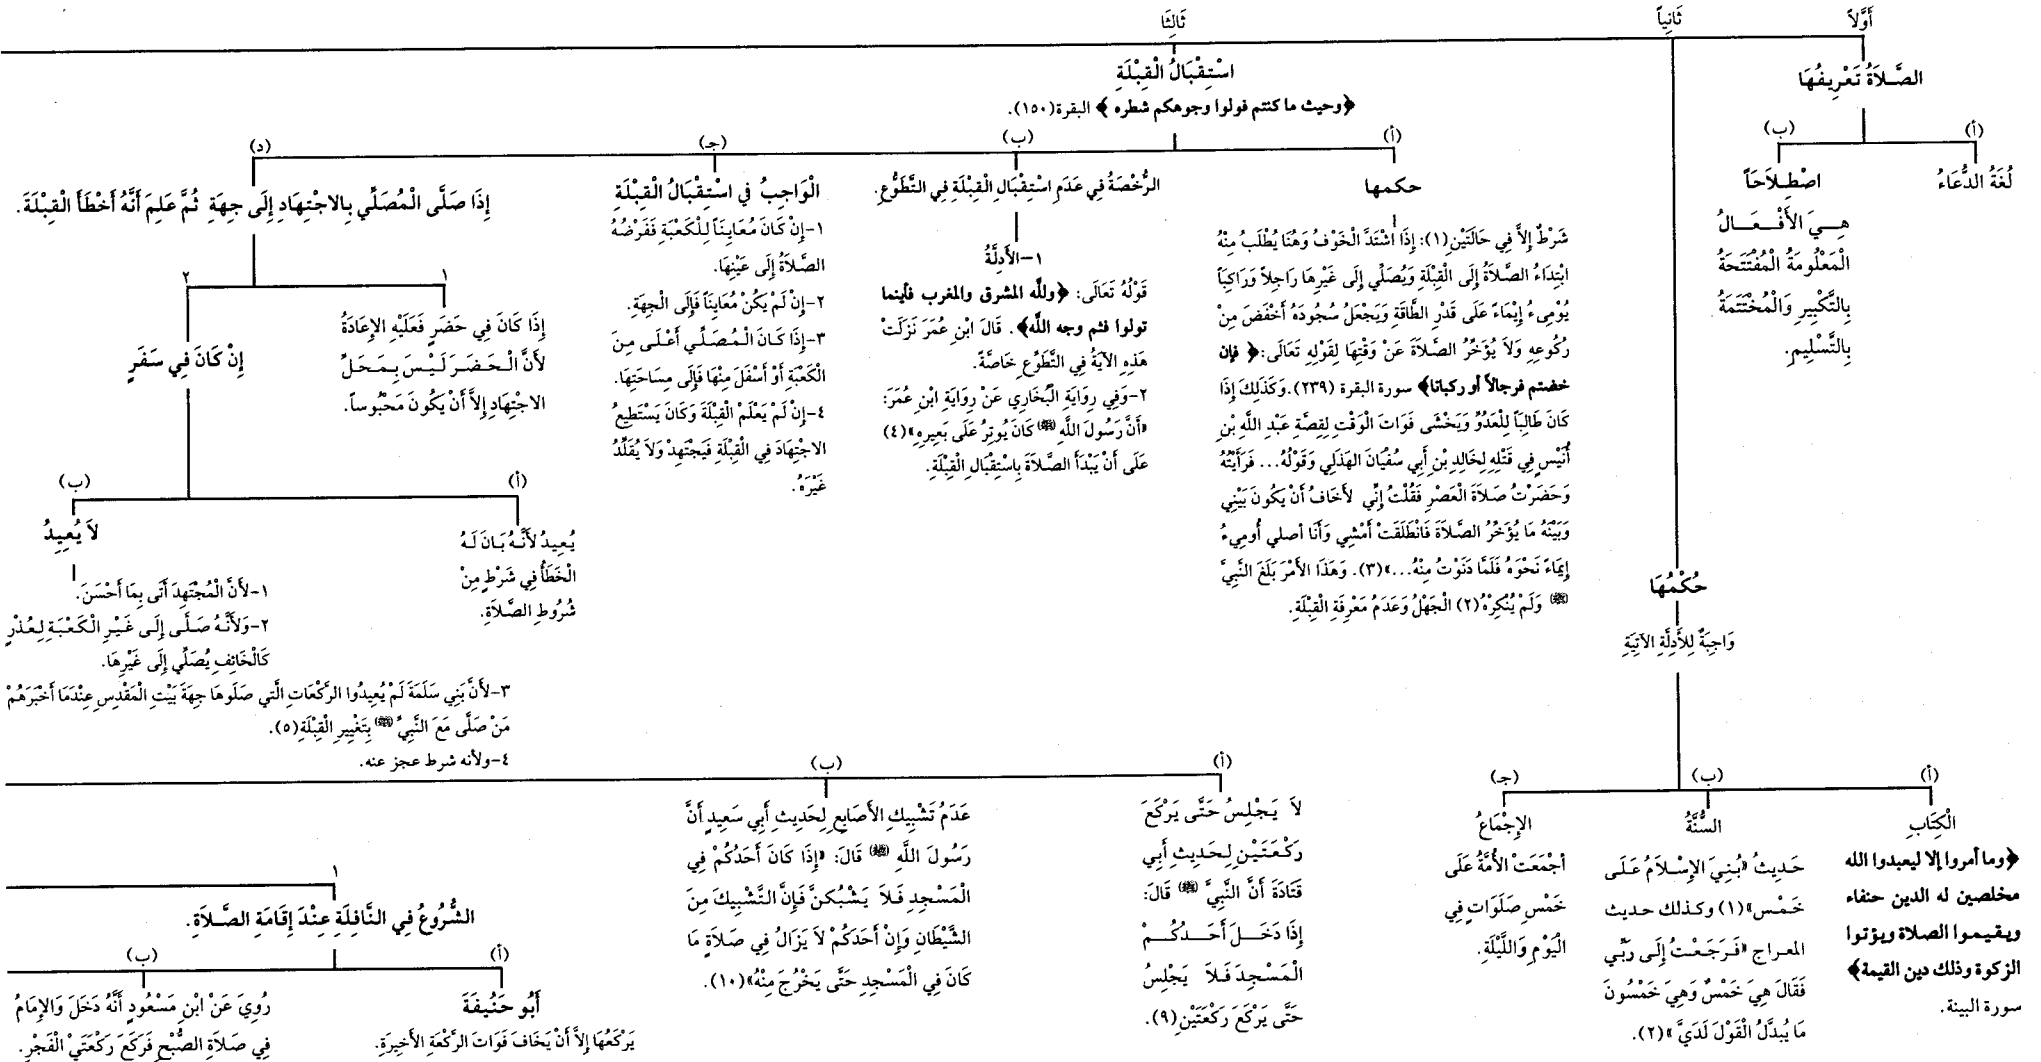 أَوَّلاً
الصَّلاَةُ تَعْرِيفُهَا
(أ)
لُغَةُ الدُّعَاءُ
(ب)
اصْطِلاَحَاً
هِيَ الأَفْعَالُ
الْمَعْلُومَةُ الْمُفْتَتَحَةُ
بِالتَّكْبِيرِ وَالْمُخْتَتَمَةُ
بِالتَّسْلِيمِ.
ثَانِياً
حُكْمُهَا
وَاجِبَةٌ لِلأَدِلَّةِ الآتِيَةِ
(أ)
الْكِتَابِ
﴿وما أمروا إلا ليعبدوا الله
مخلصين له الدين حنفاء
ويقيموا الصلاة ويؤتوا
الزكوة وذلك دين القيمة﴾
سورة البينة.
(ب)
السُّنَّةُ
حَدِيثُ «بُنِيَ الإِسْلاَمُ عَلَى
خَمْس»(١) وكذلك حديث
المعراج «فَرَجَعْتُ إِلَى رَبِّي
فَقَالَ هِيَ خَمْسٌ وَهِيَ خَمْسُونَ
مَا يُبدَّلُ الْقَوْلَ لَدَيَّ»(٢).
(جـ)
الإِجْمَاعُ
أجْمَعَتْ الأُمَّةُ عَلَى
خَمْسِ صَلَوَاتٍ فِي
الْيَوْمِ وَاللَّيْلَةِ.
ثَالِثَا
اسْتِقْبَالُ الْقِبْلَةِ
﴿وحيث ما كنتم فولوا وجوهكم شطره﴾ البقرة(١٥٠).
(أ)
حكمها
شَرْطٌ إِلاَّ فِي حَالَتَيْنِ(١): إِذَا اشْتَدَّ الْخَوْفُ وَهُنَا يُطْلَبُ مِنْهُ
ابْتِدَاءُ الصَّلاَةُ إِلَى الْقِبْلَةِ وَيُصَلِّي إِلَى غَيْرِهَا رَاجِلاً وَرَاكِبَاً
يُوْمِىءُ إِيْمَاءً عَلَى قَدْرِ الطَّاقَةِ وَيَجْعَلُ سُجُودَهُ أَخْفَضَ مِنْ
رُكُوعِهِ وَلاَ يُؤَخِّرُ الصَّلاَةَ عَنْ وَقْتِهَا لِقَوْلِهِ تَعَالَى: ﴿فإن
خضتم فرجالاً أو ركبانا﴾ سورة البقرة (٢٣٩).وَكَذَلِكَ إِذَا
كَانَ طَالِبَاً لِلْعَدُوِّ وَيَخْشَى فَوَاتَ الْوَقْتِ لِقِصَّةِ عَبْدِ اللَّهِ بْنِ
أُنَيْسٍ فِي قَتْلِهِ لِخَالِدِ بْنِ أَبِي سُفْيَانَ الهَذَلِي وَقَوْلُهُ... فَرَأَيْتُهُ
وَحَضَرْتُ صَلاَةَ الْعَصْرِ فَقُلْتُ إِنِّي لأَخَافُ أَنْ يَكُونَ بَيْنِي
وَبَيْنَهُ مَا يُؤَخِّرُ الصَّلاَةَ فَانْطَلَقَتْ أَمْشِي وَأَنَا أصلي أُومِيءُ
إِيْمَاءً نَحْوَهُ فَلَمَّا دَنَوْتُ مِنْهُ...»(٣). وَهَذَا الأَمْرَ بَلَغَ النَّبِيَّ
ﷺ وَلَمْ يُنْكِرْهُ(٢) الْجَهْلُ وَعَدَمُ مَعْرِفَةِ الْقِبْلَةِ.
(ب)
الرُّخْصَةُ فِي عَدَمِ اسْتِقْبَالِ الْقِبْلَةِ فِي التَّطَوُّعِ.
١-الأَدِلَّةُ
قَوْلُهُ تَعَالَى: ﴿وللَّه المشرق والمغرب فأينما
تولوا فثم وجه اللَّه﴾. قَالَ ابْنِ عُمَرَ نَزَلَتْ
هَذِهِ الآيَةُ فِي التَّطَوِّعِ خَاصَّةً.
٢-وَفِي رِوَايَةِ الْبُخَارِي عَنْ رِوَايَةِ ابْنِ عُمَرَ:
«أَنَّ رَسُولَ اللَّهِ ﷺ كَانَ يُوتِرُ عَلَى بَعِيرِهِ»(٤)
عَلَى أَنْ يَبْدَأَ الصَّلاَةَ بِاسْتِقْبَالِ الْقِبْلَةِ.
(جـ)
الْوَاجِبُ في اسْتِقْبَالُ الْقِبْلَةِ
١-إِنْ كَانَ مُعَايِنَاً لِلْكَعْبَةِ فَفَرْضُهُ
الصَّلاَةُ إِلَى عَيْنِهَا.
٢-إِنْ لَمْ يَكُنْ مُعَايِنَاً فَإِلَى الْجِهَةِ.
٣-إِذَا كَانَ الْمُصَلِّي أَعْلَى مِنَ
الْكَعْبَةِ أَوْ أَسْفَلَ مِنْهَا فَإِلَى مِسَاحَتِهَا.
٤-إِنْ لَمْ يَعْلَمْ الْقِبْلَةَ وَكَانَ يَسْتَطِيعُ
الاجْتِهَادَ فِي الْقِبْلَةِ فَيَجْتَهِدْ وَلاَ يُقَلِّدُ
غَيْرَهُ.
(د)
إِذَا صَلَّى الْمُصَلِّي بِالاجْتِهَادِ إِلَى جِهَةِ ثُمَّ عَلِمَ أَنَّهُ أَخْطَأَ الْقِبْلَةَ.
١
إِذَا كَانَ فِي حَضَرٍ فَعَلَيْهِ الإِعَادَةُ
لأَنَّ الْحَضَرَ لَيْسَ بِمَحَلِّ
الاجْتِهَادِ إِلاَّ أَنْ يَكُونَ مَحْبُوساً.
٢
إِنْ كَانَ فِي سَفَرٍ
(أ)
يُعِيدُ لأَنَّهُ بَانَ لَهُ
الْخَطَأُ فِي شَرْطٍ مِنْ
شُرُوطِ الصَّلاَةِ.
(ب)
لاَ يُعِيدُ
١-لأَنَّ الْمُجْتَهِدَ أَتَى بِمَا أَحْسَنَ.
٢-وَلأَنَّهُ صَلَّى إِلَى غَيْرِ الْكَعْبَةِ لِعُذْرٍ
كَالْخَائِفِ يُصَلِّي إِلَى غَيْرِهَا.
٣-لأَنَّ بَنِي سَلَمَةَ لَمْ يُعِيدُوا الرَّكْعَاتِ الَّتِي صَلَوهَا جِهَةَ بَيْتِ الْمَقْدِسِ عِنْدَمَا أَخْبَرَهُمْ
مَنْ صَلَّى مَعَ النَّبِيِّ ﷺ بِتَغْيِيرِ الْقِبْلَةِ(٥).
٤-ولأنه شرط عجز عنه.
(أ)
لاَ يَجْلِسُ حَتَّى يَرْكَعَ
رَكْعَتَيْنِ لِحَدِيثِ أَبِي
قَتَادَةَ أَنَّ النَّبِيَّ ﷺ قَالَ:
إِذَا دَخَلَ أَحَدُكُمْ
الْمَسْجِدَ فَلاَ يَجْلِسُ
حَتَّى يَرْكَعَ رَكْعَتَيْنِ(٩).
(ب)
عَدَمُ تَشْبِيكِ الأَصَابِعِ لِحَدِيثِ أَبِي سَعِيدٍ أَنَّ
رَسُولَ اللَّهِ ﷺ قَالَ: «إِذَا كَانَ أَحَدُكُمْ فِي
الْمَسْجِدِ فَلاَ يَشْبُكَنَّ فَإِنَّ التَّشْبِيكَ مِنَ
الشَّيْطَانِ وَإِنْ أَحَدَكُمْ لاَ يَزَالُ فِي صَلاَةٍ مَا
كَانَ فِي الْمَسْجِدِ حَتَّى يَخْرُجَ مِنْهُ»(١٠).
١
الشُّرُوعُ فِي النَّافِلَةِ عِنْدَ إِقَامَةِ الصَّلاَةِ.
(أ)
أَبُو حَنُيفَةَ
يَرْكَعُهَا إِلاَّ أَنْ يَخَافَ فَوَاتَ الرَّكْعَةِ الأَخِيرَةِ.
(ب)
رُوِيَ عَنْ ابْنِ مَسْعُودٍ أَنَّهُ دَخَلَ وَالإِمَامُ
فِي صَلاَةِ الصُّبْحِ فَرَكَعَ رَكْعَتَيْ الْفَجْرِ.